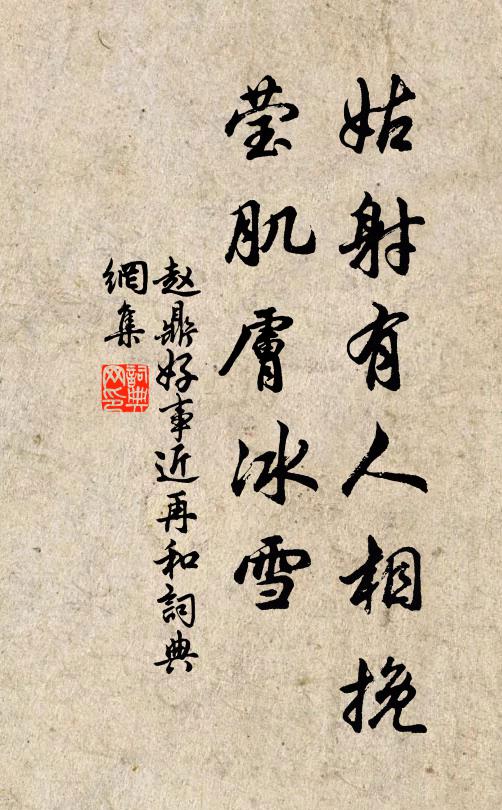 姑射有人相挽
莹肌膚冰雪
赵鼎好事近再和詞典
網集
詞典
网印